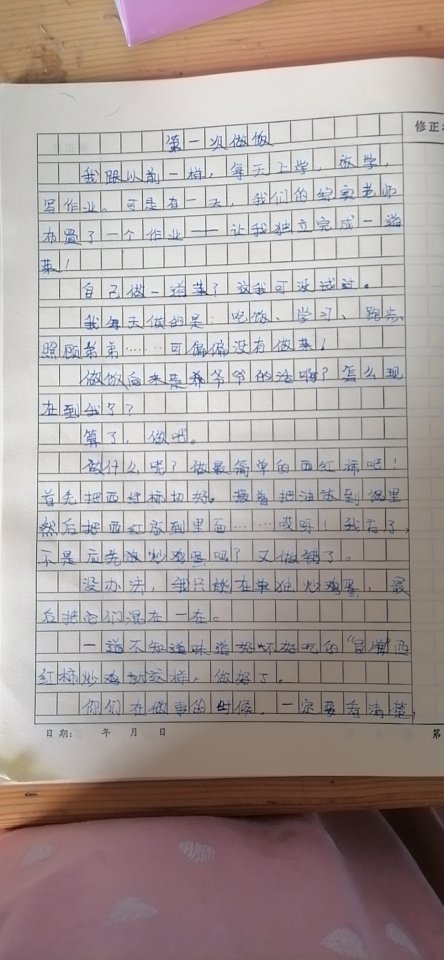 修正
第一次做饭
我跟以前一样，每天上学，放学，
写作业。可是有一天，我们的编实老师
布置了一个作业——让我独立完成一道
菜！
自己做一道菜？这我可没试过。
我每天做的是：吃饭、学习、跑步、
照顾弟弟……可偏偏没有做菜！
做饭向来是爷爷的活啊？怎么现
在到我了？
算了，做吧。
做什么呢？做最简单的西红柿吧！
首先把西红柿切好。接着把油放到锅里
然后把西红放到里面……哎呀！我忘了，
不是应先放炒鸡蛋吗？又做错了。
没办法，我只在单独炒鸡蛋，最
后把它们混在一在。
一道不知道味道好坏好吃的“冒牌”西
红柿炒鸡就这样，做好了。
你们在做事的时候，一定要看清楚，
日期： 年 月 日
第